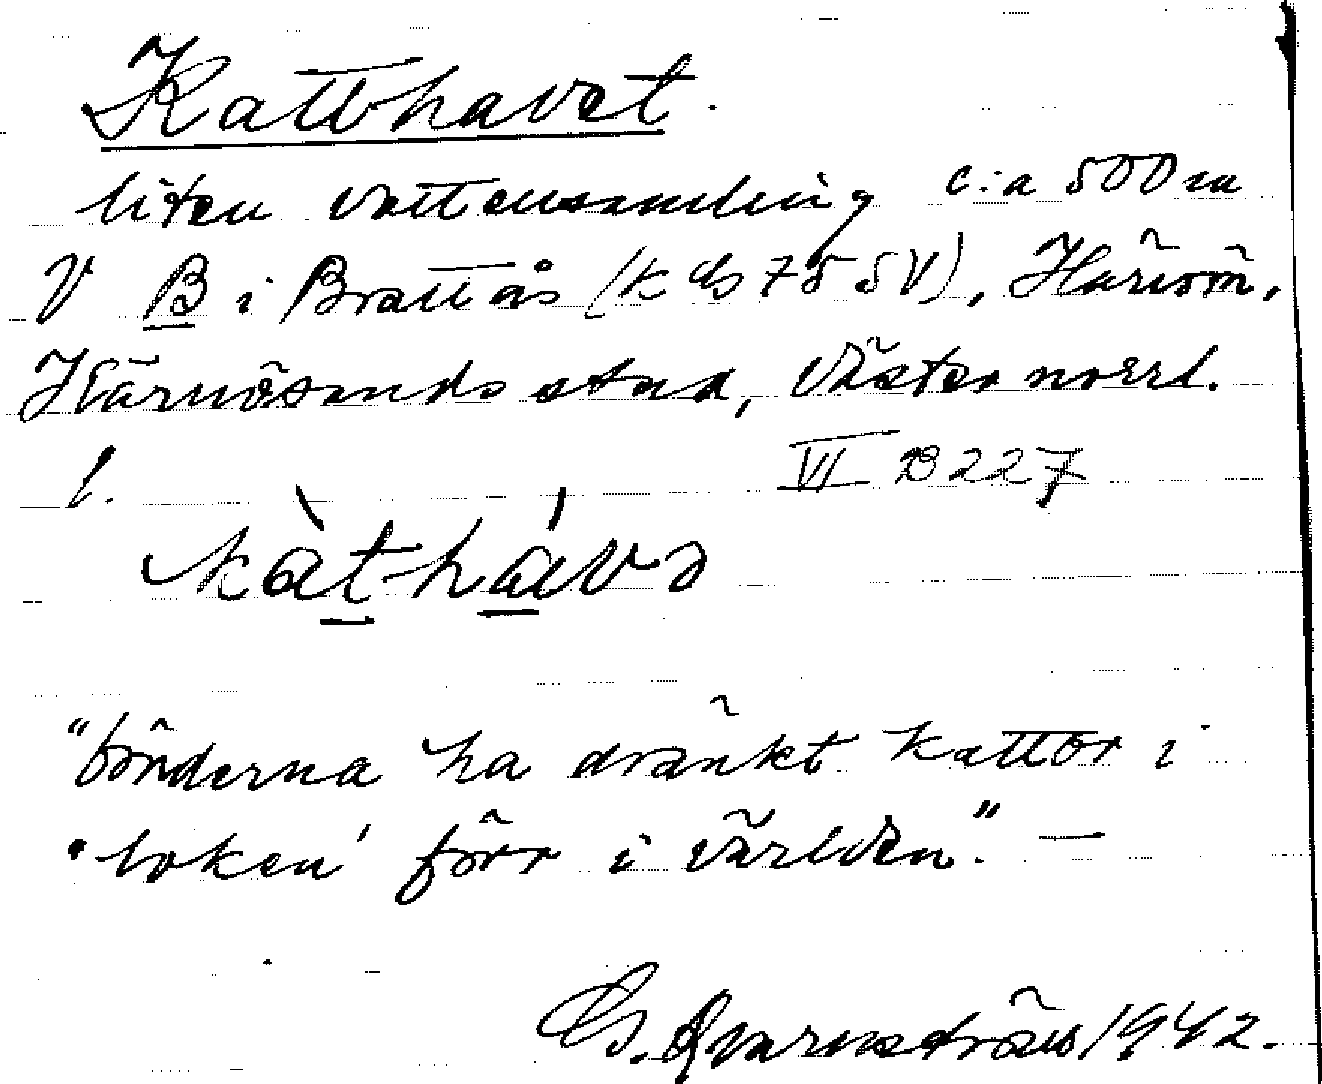 Katthavet.
liten vattensamling c:a 500 m
V B i Brattås (k bl 755 V), Härnön,
Härnösands stad, Västernorrl.
l. VI B 227
kàt-hávə
"bönderna ha dränkt kattor i
'loken' förr i världen." —
G. Qvarnström 1942.